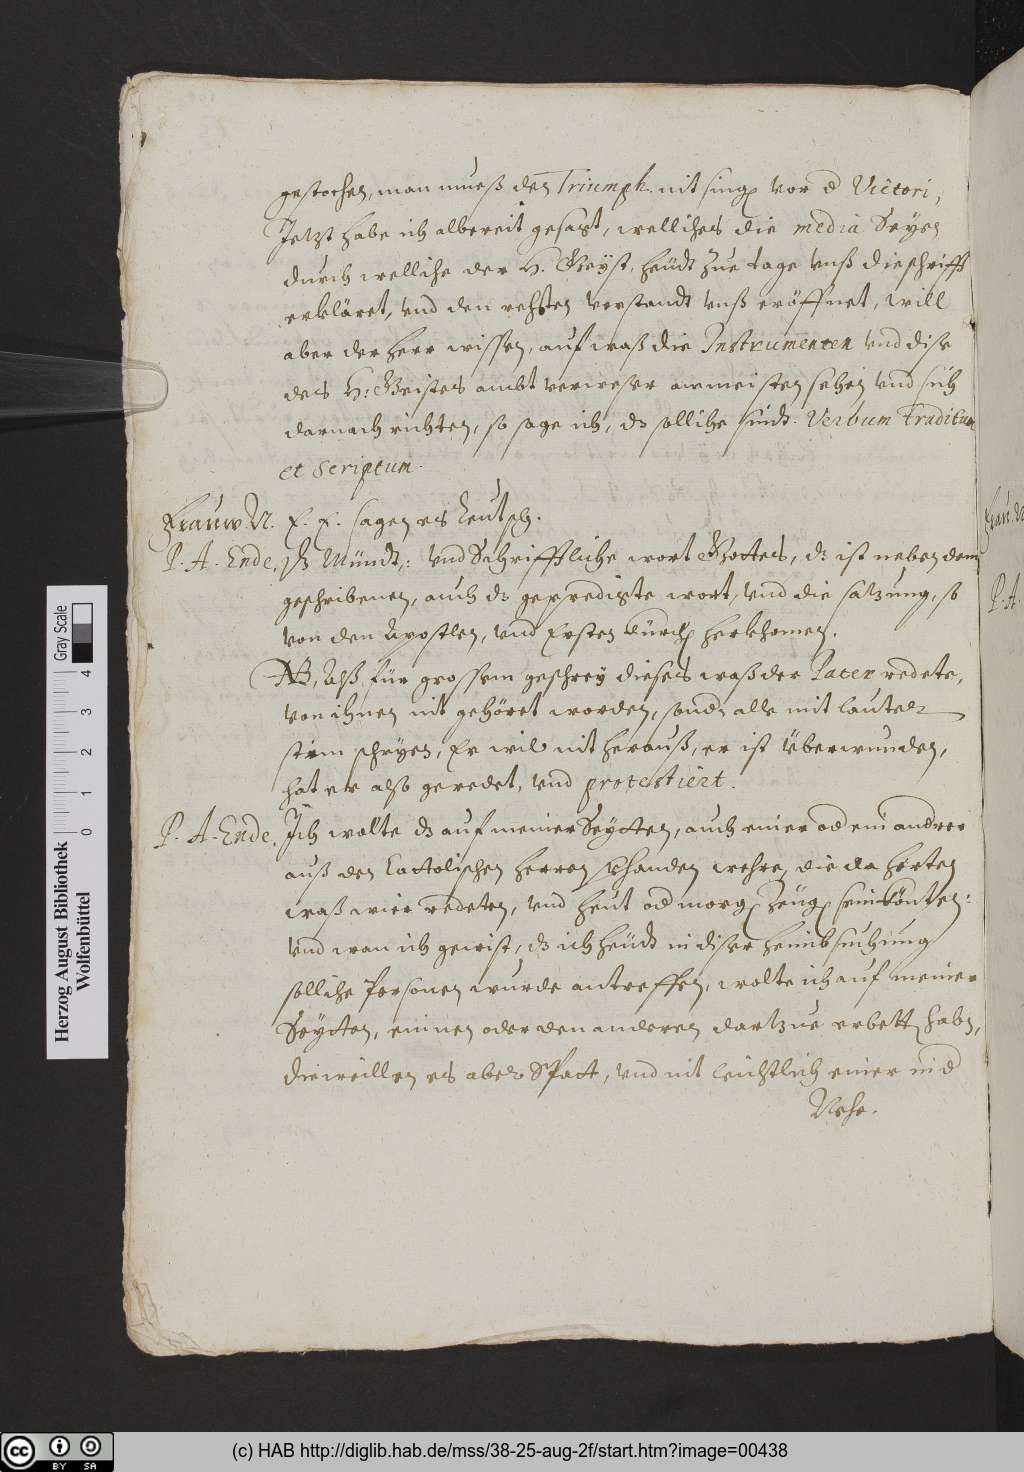 gestochen, man mueß den Triumph. nit sing vor d Victori,
Jetzt habe ich albereit gesagt, welliches die media Seyen
durch welliche der H. Geyst, heüdt zue tage vnß die schrifft
erkläret, vnd den rechten verstandt vnß eröffnet, will
aber der herr wissen, auf waß die Instrumenten vnd dise
des H: Geistes ambt verweser am meisten sehen vnd sich
darnach richten, so sage ich, dz solliche sindt. Verbum traditum
et Scriptum.
Frauw N. E. E. sagen es teutsch.
P. A. Ende. Dz Mündt,: vnd Schrifftliche wort Gottes, dz ist neben dem
geschribenen, auch dz gepredigte wort, vnd die satzung, so
von den Apostlen, vnd Ersten herkhomen.
NB. Alß für grossem geschrey dieses waß der Pater redete,
von ihnen nit gehöret worden, sond alle mit lauter
stim schryen, Er wil nit herauß, er ist Überwunden,
hat er also geredet, vnd protestiert.
P. A. Ende. Ich wolte dz auf meiner Seytten, auch einer od ein andrer
auß den Cattolischen herren verhanden wehre, die da herten
waß wier redeten, vnd heut od morg Zeüg sein könten:
vnd wan ich gewist, dz ich heüdt in diser heimbsuchung
solliche Personen wurde antreffen, wolte ich auf meiner
Seytten, einnen oder den anderen dartzue erbett habn,
dieweillen es aber Spatt, vnd nit leichtlich einer in d
Nehe.
Frau. N
P. A.
Herzog August Bibliothek
Wolfenbüttel
0 1 2 3 4
Gray Scale
cc BY SA
(c) HAB http://diglib.hab.de/mss/38-25-aug-2f/start.htm?image=00438